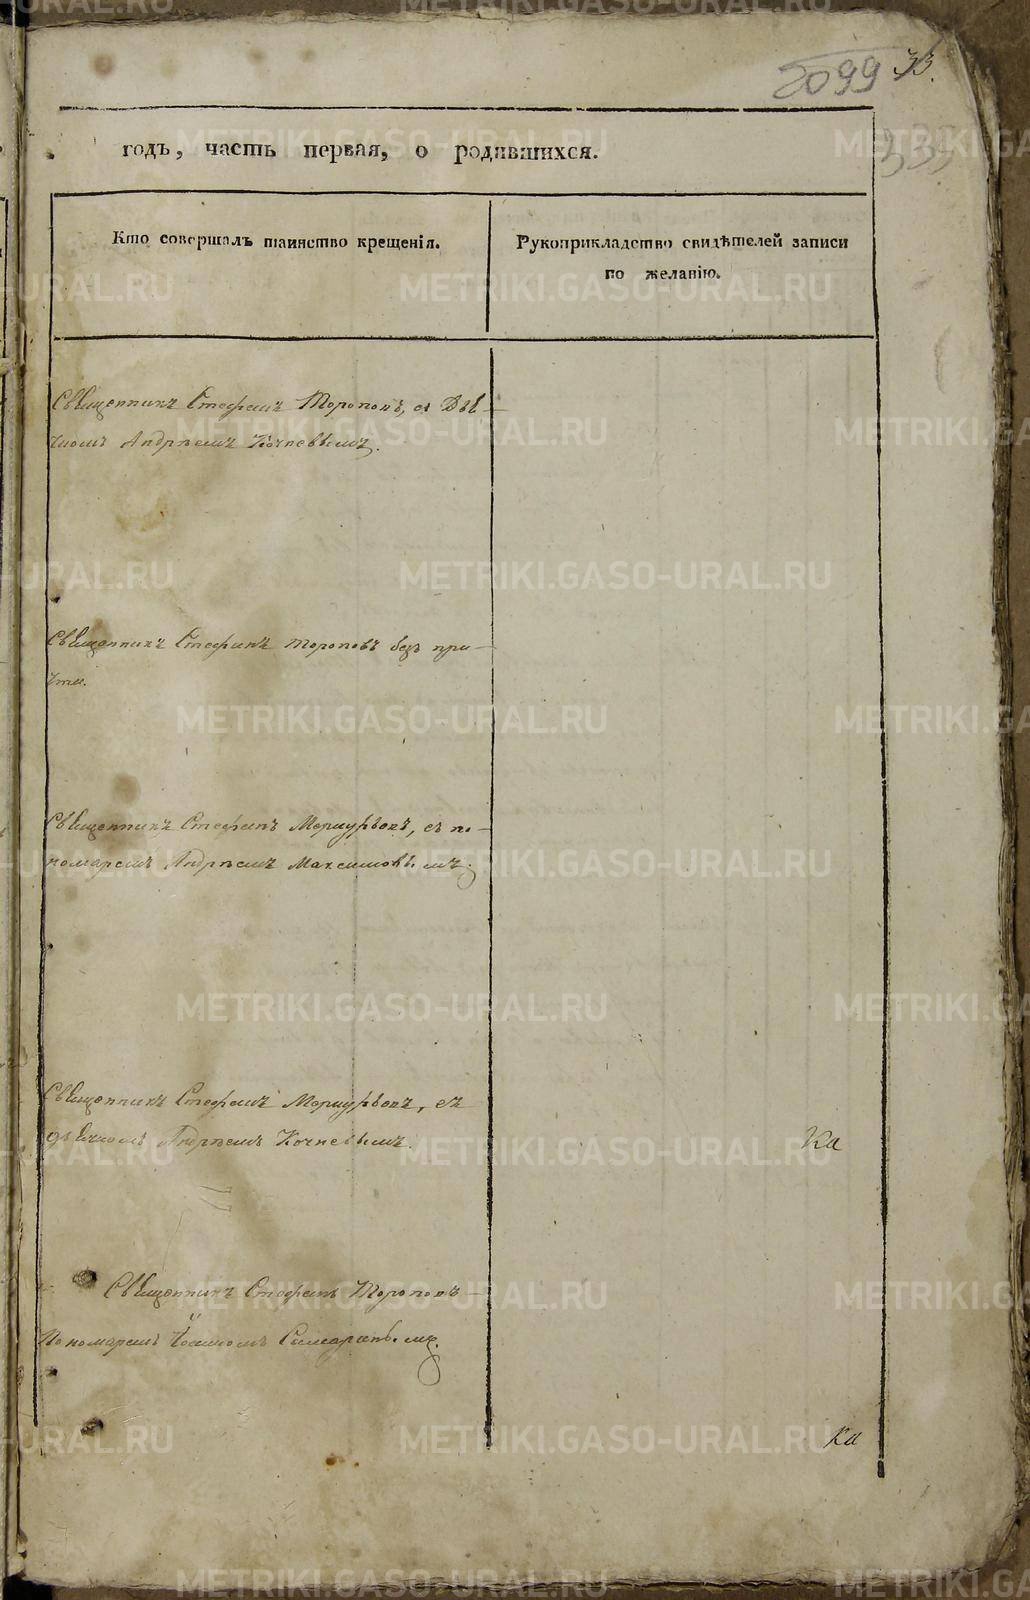 2099 33.
335
годъ, часть первая, о родившихся.
Кто совершалъ таинство крещенія.
Рукоприкладство свидѣтелей записи
по желанію.
Священникъ Стефанъ Тороповъ, съ Дья-
чкомъ Андреемъ Кочневымъ.
Священникъ Стефанъ Тороповъ безъ при-
чта.
Священникъ Стефанъ Меркурьевъ, съ по-
номаремъ Андреемъ Максимовымъ.
Священникъ Стефанъ Меркурьевъ, съ
дьячкомъ Андреемъ Кочневымъ.
Ка
Священникъ Стефанъ Тороповъ
Пономаремъ
Ка
METRIKI.GASO-URAL.RU